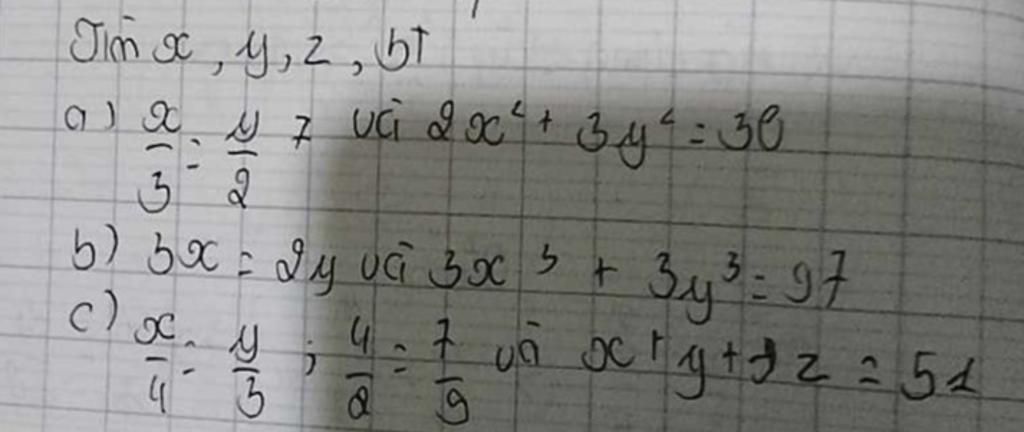 Tìm x, y, z, bt
a) x/3 = y/2 và 2x² + 3y² = 30
b) 3x = 2y và 3x³ + 3y³ = 97
c) x/4 = y/3 ; 4/2 = 7/9 và x + y + z = 51